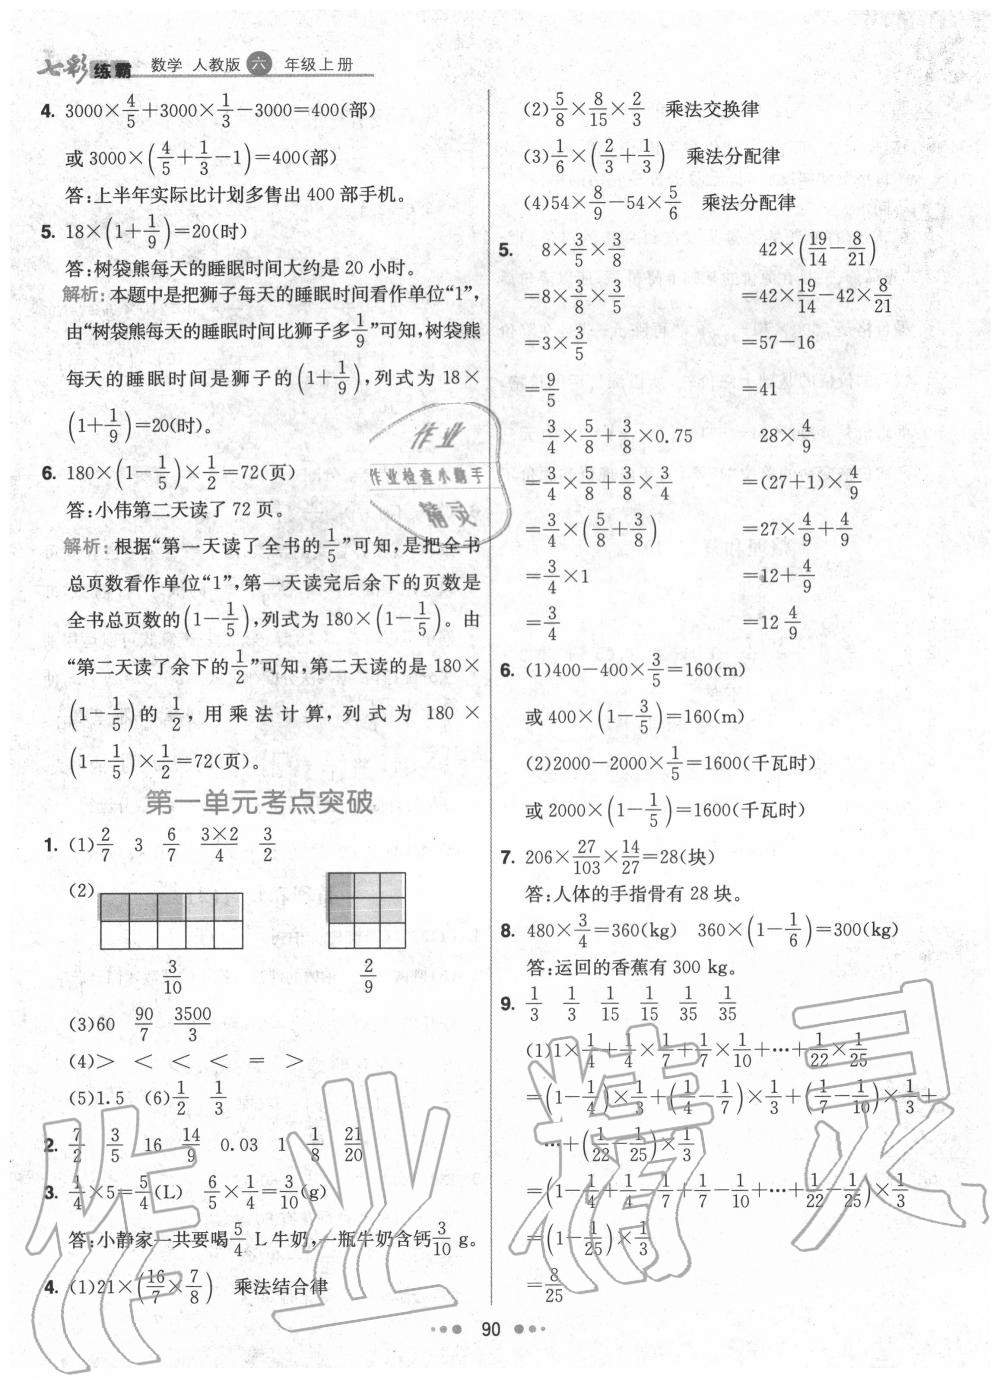 七彩练霸 数学 人教版 六 年级上册
4. 3000×4/5+3000×1/3-3000=400(部)
或 3000×(4/5+1/3-1)=400(部)
答:上半年实际比计划多售出 400 部手机。
5. 18×(1+1/9)=20(时)
答:树袋熊每天的睡眠时间大约是 20 小时。
解析:本题中是把狮子每天的睡眠时间看作单位“1”,
由“树袋熊每天的睡眠时间比狮子多1/9”可知,树袋熊
每天的睡眠时间是狮子的(1+1/9),列式为 18×
(1+1/9)=20(时)。
6. 180×(1-1/5)×1/2=72(页)
答:小伟第二天读了 72 页。
解析:根据“第一天读了全书的1/5”可知,是把全书
总页数看作单位“1”,第一天读完后余下的页数是
全书总页数的(1-1/5),列式为 180×(1-1/5)。由
“第二天读了余下的1/2”可知,第二天读的是 180×
(1-1/5)的1/2,用乘法计算,列式为 180×
(1-1/5)×1/2=72(页)。
第一单元考点突破
1. (1)2/7 3 6/7 3×2/4 3/2
(2)
3/10 2/9
(3)60 90/7 3500/3
(4)> < < < = >
(5)1.5 (6)1/2 1/3
2. 7/2 3/5 16 14/9 0.03 1 1/8 21/20
3. 1/4×5=5/4(L) 6/5×1/4=3/10(g)
答:小静家一共要喝5/4 L 牛奶,一瓶牛奶含钙3/10 g。
4. (1)21×(16/7×7/8) 乘法结合律
(2)5/8×8/15×2/3 乘法交换律
(3)1/6×(2/3+1/3) 乘法分配律
(4)54×8/9-54×5/6 乘法分配律
5. 8×3/5×3/8
=8×3/8×3/5
=3×3/5
=9/5
42×(19/14-8/21)
=42×19/14-42×8/21
=57-16
=41
3/4×5/8+3/8×0.75
=3/4×5/8+3/8×3/4
=3/4×(5/8+3/8)
=3/4×1
=3/4
28×4/9
=(27+1)×4/9
=27×4/9+4/9
=12+4/9
=12 4/9
6. (1)400-400×3/5=160(m)
或 400×(1-3/5)=160(m)
(2)2000-2000×1/5=1600(千瓦时)
或 2000×(1-1/5)=1600(千瓦时)
7. 206×27/103×14/27=28(块)
答:人体的手指骨有 28 块。
8. 480×3/4=360(kg) 360×(1-1/6)=300(kg)
答:运回的香蕉有 300 kg。
9. 1/3 1/3 1/15 1/15 1/35 1/35
(1)1×1/4+1/4×1/7+1/7×1/10+…+1/22×1/25
=(1-1/4)×1/3+(1/4-1/7)×1/3+(1/7-1/10)×1/3+
…+(1/22-1/25)×1/3
=(1-1/4+1/4-1/7+1/7-1/10+…+1/22-1/25)×1/3
=(1-1/25)×1/3
=8/25
90
作业
作业检查小助手
精灵
作业精灵